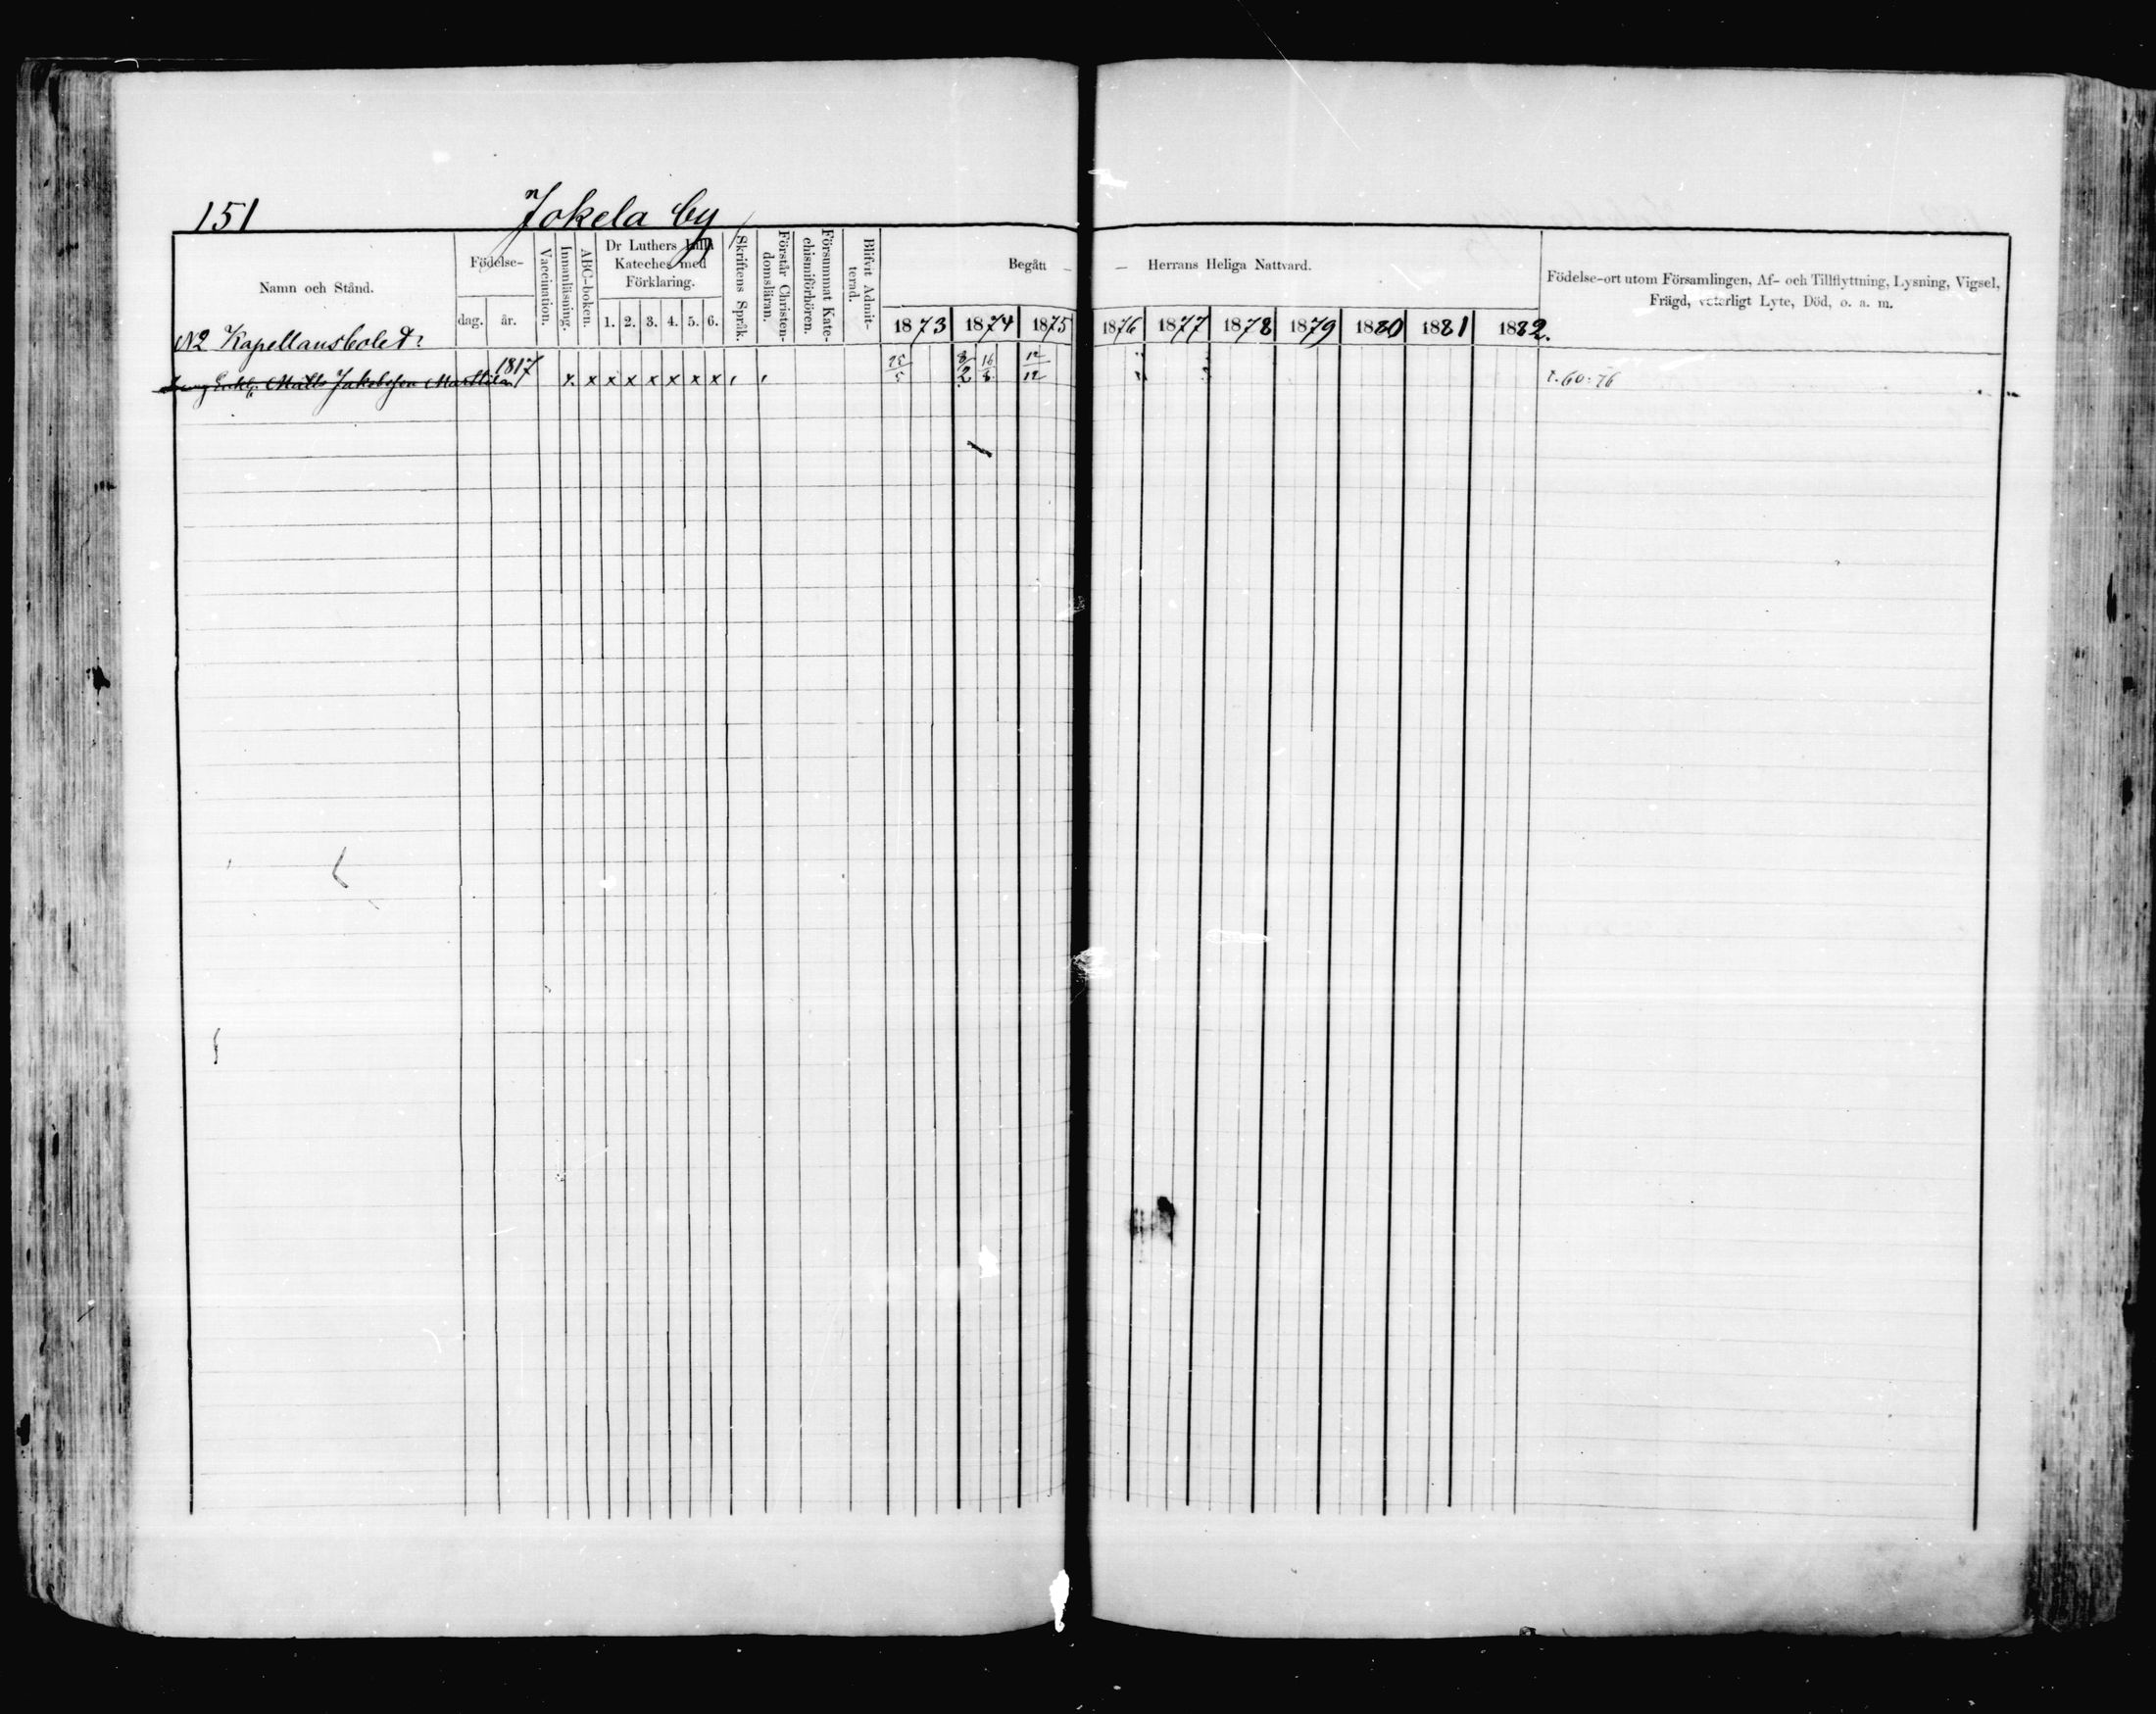 151 Jokela by
Namn och Stånd.
Födelse-
dag. år.
Vaccination.
Innanläsning.
ABC-boken.
Dr Luthers Lilla
Kateches med
Förklaring.
1. 2. 3. 4. 5. 6.
Skriftens Språk.
Förstår Christen-
domsläran.
Försummat Kate-
chismiförhören.
Blifvit Admit-
terad.
Begått — — Herrans Heliga Nattvard.
1873 1874 1875 1876 1877 1878 1879 1880 1881 1882.
Födelse-ort utom Församlingen, Af- och Tillflyttning, Lysning, Vigsel,
Frägd, veterligt Lyte, Död, o. a. m.
N2 Kapellansbolet
Enkl. Matts Jakobsson Marttila 1817 x x x x x x x x 25/5 8/2 16/8 12/12 t. 60. 76